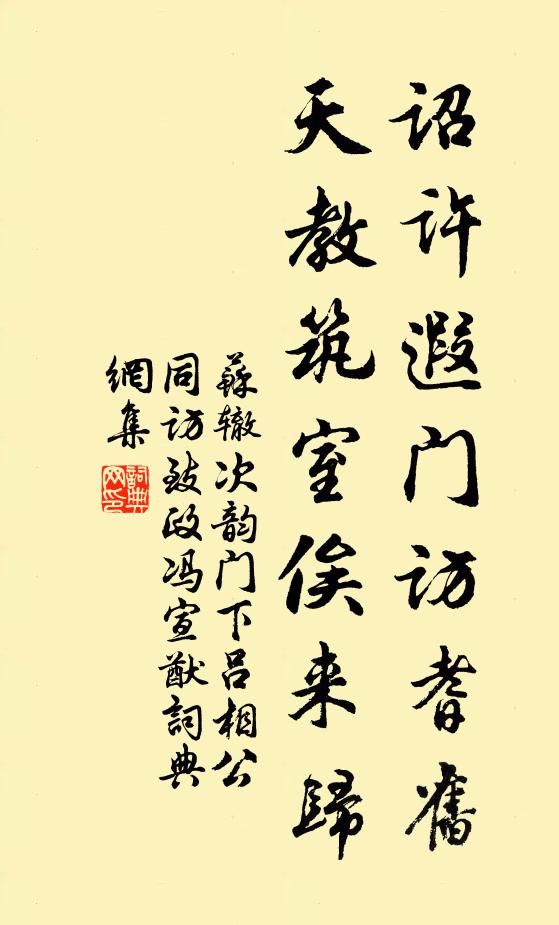 诏许遐门访耆舊
天教筑室俟来歸
蘇辙次韵门下吕相公
同访致政冯宣猷詞典
網集
詞典
网印